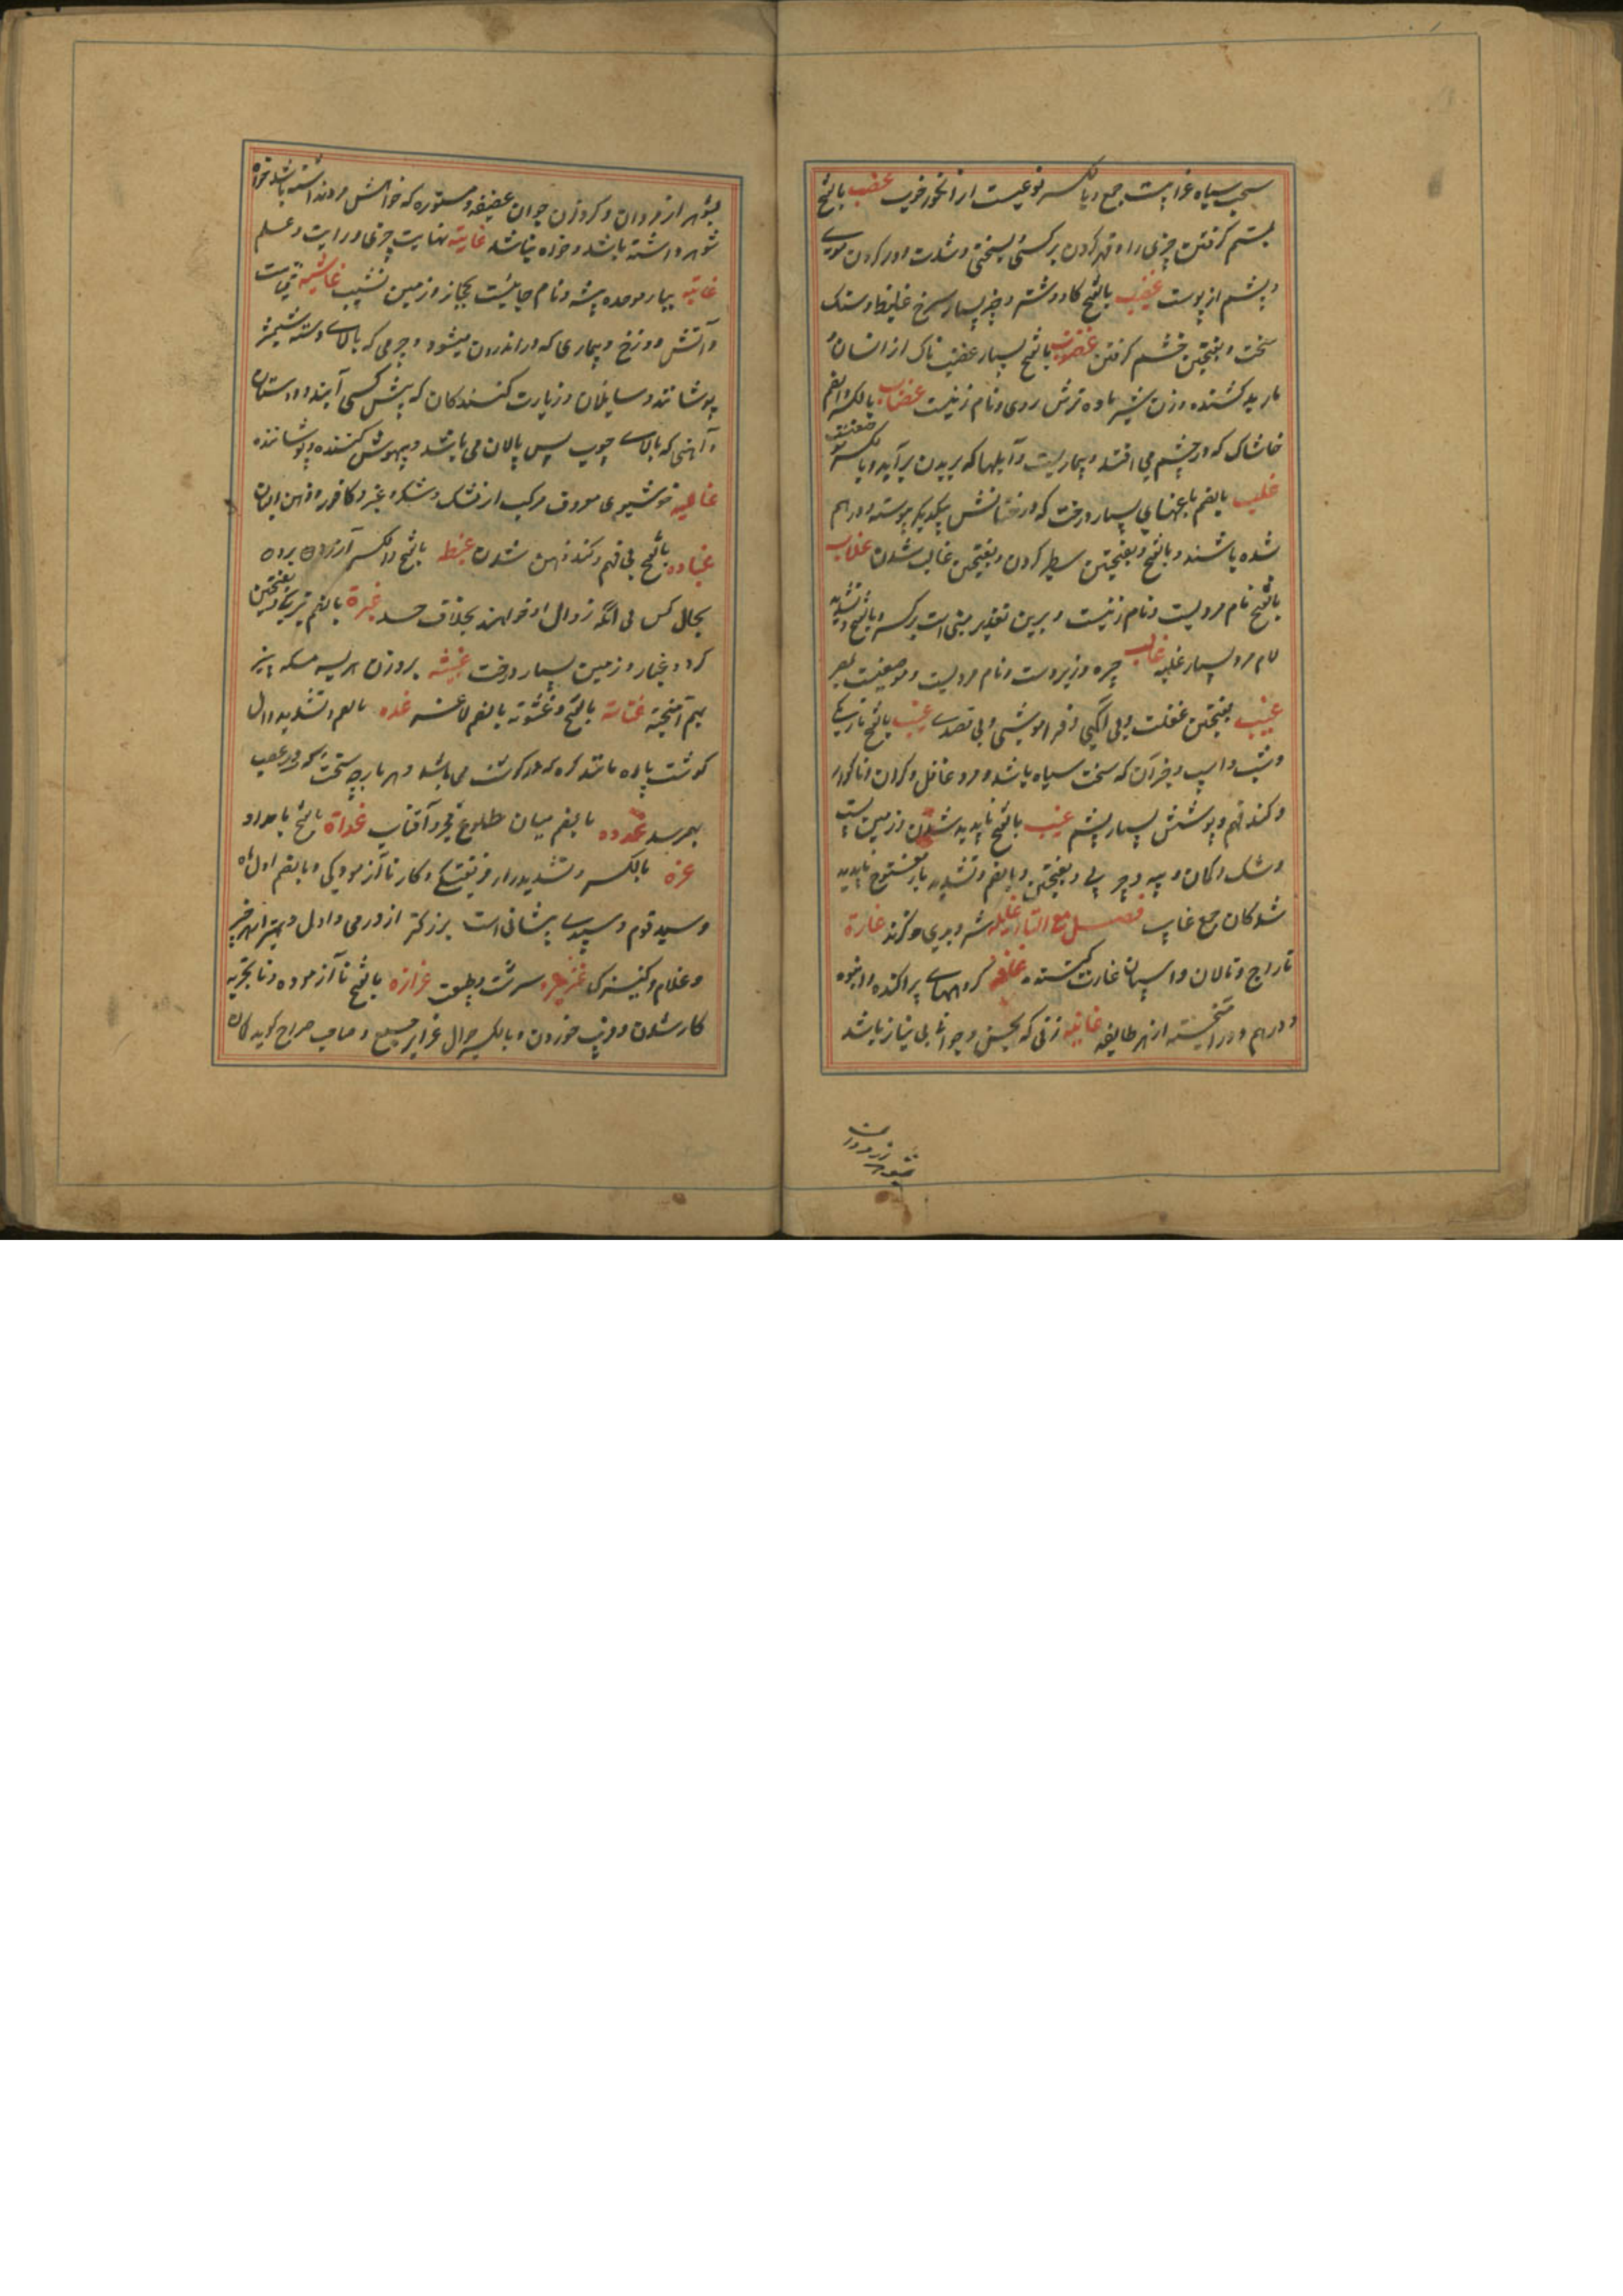 سخت سیاه غرابیب جمع و بالکسر نوعیست از انکور خوب غصب بالفتح
بستم کرفتن چیزی را و قهر کردن بر کسی بسختی و شدت و دور کردن موی
و پشم از پوست غضب بالفتح کاو و شتر و چیز بسیار سرخ غلیظ و سنک
سخت و بفتحتین خشم کرفتن غضوب بالفتح بسیار غضب ناک از انسان و
مار بد کشنده و زن شیر ماده ترش روی و نام زنیست غضاب بالکسر و الضم
خاشاک که در چشم می افتد و بیماریست و آبلها که بر بدن برآید و بالکسر
غلب بالضم باغهای بسیار درخت که درختانش بیکدیکر پیوسته و درهم
شده باشند و بالفتح و بفتحتین سطبر کردن و بفتحتین غالب شدن غلاب
بالفتح نام مردیست و نام زنیست و برین تقدیر مبنی است بر کسر و بالفتح و تشدید
لام مرد بسیار غلبه غالب چیره و زبردست و نام مردیست و موضعیست بمصر
غیهب بفتحتین غفلت و بی اکهی و فراموشی و بی قصدی غیهب بالفتح تاریکی
و شب و اسپ و جز آن که سخت سیاه باشد و مرد غافل و کران و ناکوار
و کند فهم و پوشش بسیار پشم غیب بالفتح ناپدید شدن و زمین پست
و شک و کمان و پیه و چربی و بفتحتین و بالضم و تشدید یار مفتوح ناپدید
شدکان جمع غایب فصل مع التاء غله شر و بدی و کزند غارة
تاراج و تالان و اسپان غارت کننده غاغه کروههای پراکنده و انبوه
و درهم و در آمیخته از هر طایفه غانیه زنی که بحسن و جوانی بی نیاز باشد
بشوهر از مردان و کرد و زن جوان عفیفه و مستوره که خواهش مرد نداشته باشد خواه
شوهر داشته باشد و خواه نباشد غایة نهایت چیزی و رایت و علم
غابه ببار موحده بیشه و نام جائیست بحجاز و زمین نشیب غاشیه قیامت
و آتش دوزخ و بیماری که در اندرون میشود و چرمی که بالای دسته شمشیر
پوشانند و سایلان و زیارت کنندکان که پیش کسی آیند و دوستان
و آهنی که بالای چوب پس پالان می باشد و بیهوش کننده و پوشاننده
غالیه خوشبوی معروف مرکب از مشک و شکر و عنبر و کافور و دهن البان
غباوه بالفتح بی فهم و کند ذهن شدن غبطه بالفتح و الکسر آرزو بردن
بحال کسی بی آنکه زوال او خواهند بخلاف حسد غبرة بالضم تیرکی و بفتحتین
کرد و غبار و زمین بسیار درخت غبیثه بروزن هریسه مسکه پنیر
بهم آمیخته غثاثة بالفتح و غثوثة بالضم لاغر شدن غده بالضم و تشدید دال
کوشت پاره مانند کره که در کوشت می باشد و هر پارچه سخت که در عصب
بهم رسد غدوه بالضم میان طلوع فجر و آفتاب غداة بالفتح بامداد
غره بالکسر و تشدید را فریفتکی و کار ناآزمودکی و بالضم اول ماه
و سید قوم و سپیدی پیشانی است بزرکتر از درهمی و اول و بهتر از هر چیز
و غلام و کنیزک غریزه سرشت و طبیعت غرازه بالفتح ناآزموده و ناتجربه
کار شدن و فریب خوردن و بالکسر جوال غرایر جمع و صاحب صراح کوید کمان